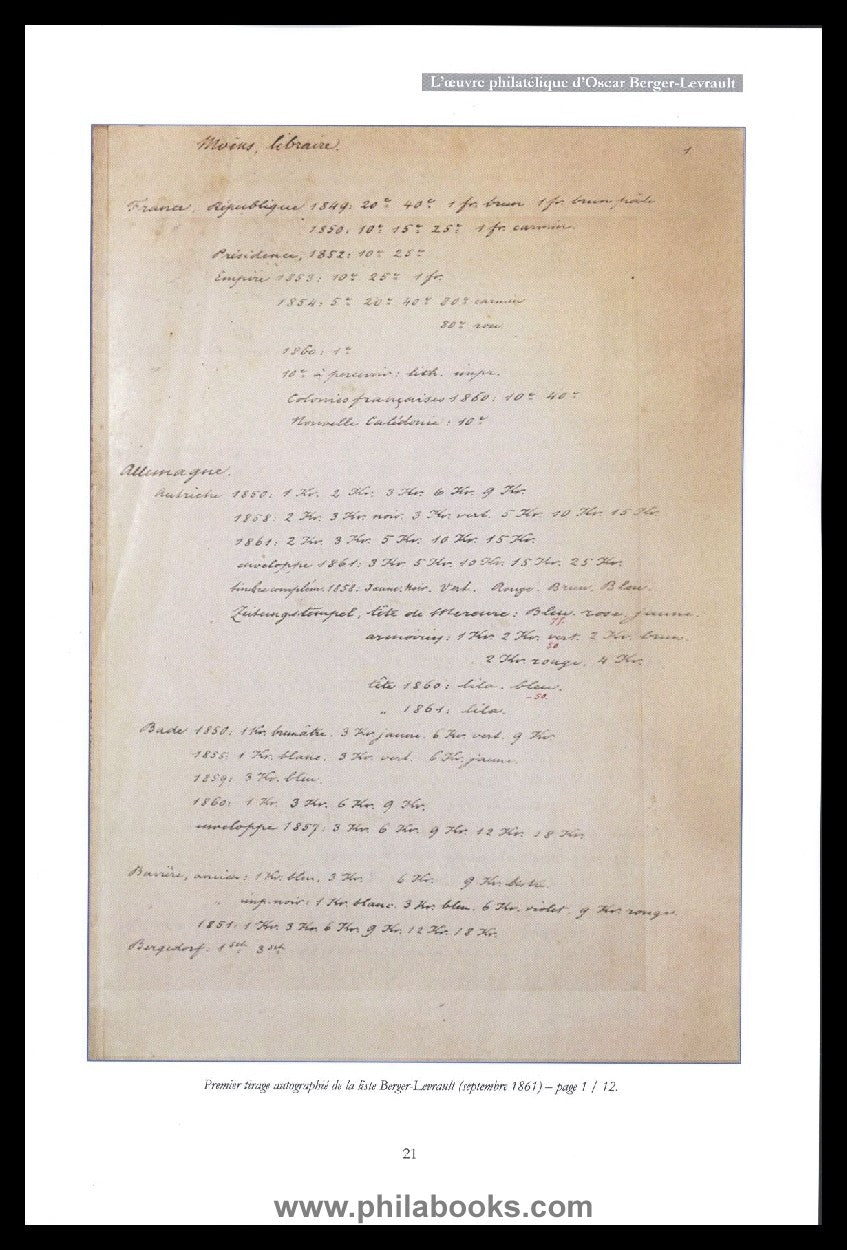 L'œuvre philatélique d'Oscar Berger-Levrault
Moins, libraire. 1.
France, République 1849: 20c 40c 1 fr. brun 1 fr brun pâle
1850: 10c 15c 25c 1 fr. carmin.
Présidence, 1852: 10c 25c
Empire 1853: 10c 25c 1 fr.
1854: 5c 20c 40c 80c carmin
80c rose
1860: 1c
10c à percevoir: lith. impr.
Colonies françaises 1860: 10c 40c
Nouvelle Calédonie: 10c
Allemagne.
Autriche 1850: 1 Kr. 2 Kr. 3 Kr. 6 Kr. 9 Kr.
1858: 2 Kr. 3 Kr. noir. 3 Kr. vert. 5 Kr. 10 Kr. 15 Kr.
1861: 2 Kr. 3 Kr. 5 Kr. 10 Kr. 15 Kr.
enveloppe 1861: 3 Kr. 5 Kr. 10 Kr. 15 Kr. 25 Kr.
timbre complém. 1858: Jaune. Noir. Vert. Rouge. Brun. Bleu.
Zeitungstempel, tête de Mercure: Bleu. rose. jaune.
armoiries: 1 Kr 2 Kr. vert. 2 Kr. brun.
2 Kr rouge. 4 Kr.
tête 1860: lila. bleu.
„ 1861: lila.
Bade 1850: 1 Kr. brunâtre. 3 Kr jaune. 6 Kr. vert. 9 Kr.
1855: 1 Kr. blanc. 3 Kr. vert. 6 Kr. jaune.
1859: 3 Kr. bleu.
1860: 1 Kr. 3 Kr. 6 Kr. 9 Kr.
enveloppe 1857: 3 Kr. 6 Kr. 9 Kr. 12 Kr. 18 Kr.
Bavière, ancien: 1 Kr. bleu. 3 Kr. 6 Kr. 9 Kr.
„ imp. noir: 1 Kr. blanc. 3 Kr. bleu. 6 Kr. violet. 9 Kr. rouge.
1851: 1 Kr. 3 Kr. 6 Kr. 9 Kr. 12 Kr. 18 Kr.
Bergedorf: 1 3
Premier tirage autographié de la liste Berger-Levrault (septembre 1861) – page 1 / 12.
21
www.philabooks.com